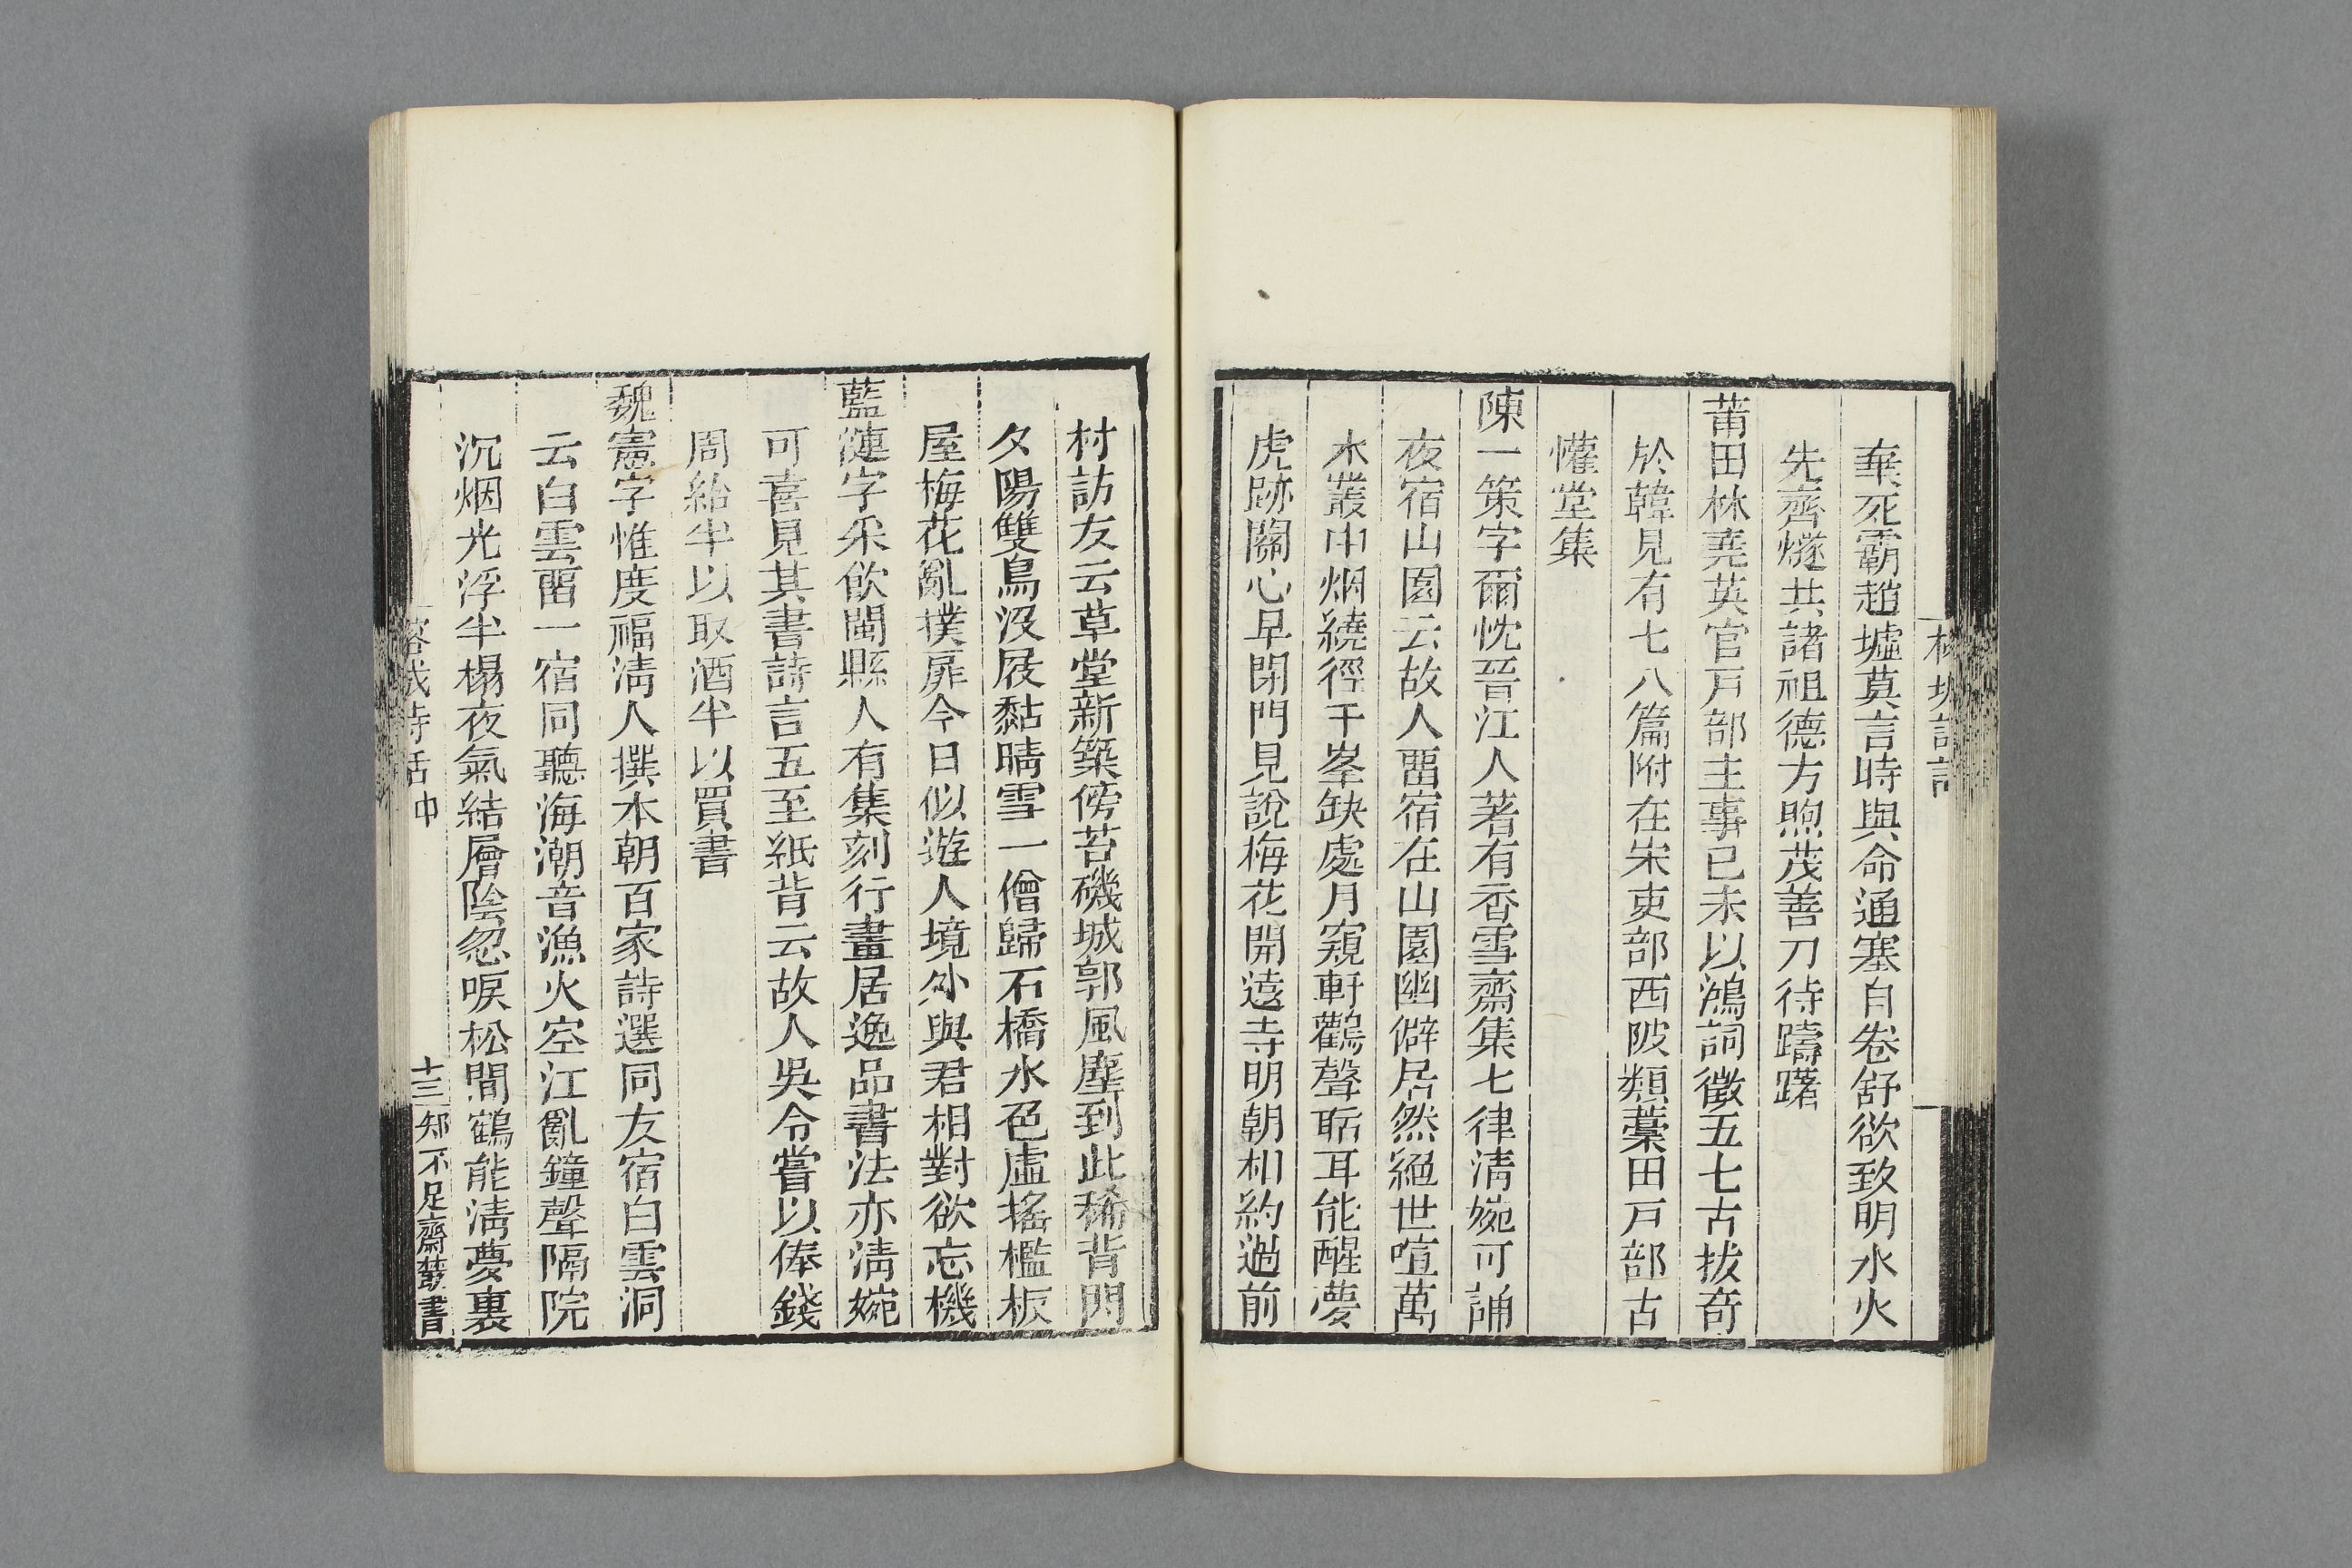 棄死霸趙墟莫言時與命通塞自卷舒欲致明水火
先齊燧共諸祖德方煦茂善刀待躊躇
莆田林堯英官戸部主事己未以鴻詞徵五七古拔奇
於韓見有七八篇附在宋吏部西陂類藁田戸部古
懽堂集
陳一策字爾忱晉江人著有香雪齋集七律淸婉可誦
夜宿山園云故人畱宿在山園幽僻居然絕世喧萬
木叢中烟繞徑千峯缺處月窺軒鸛聲聒耳能醒夢
虎跡關心早閉門見說梅花開遠寺明朝相約過前
村訪友云草堂新築傍苔磯城郭風塵到此稀背閃
夕陽雙鳥沒屐黏晴雪一僧歸石橋水色虛搖檻板
屋梅花亂撲扉今日似遊人境外與君相對欲忘機
藍漣字采飮閩縣人有集刻行畫居逸品書法亦淸婉
可喜見其書詩言五至紙背云故人吳令嘗以俸錢
周給半以取酒半以買書
魏憲字惟度福淸人撰本朝百家詩選同友宿白雲洞
云白雲畱一宿同聽海潮音漁火空江亂鐘聲隔院
沉烟光浮半榻夜氣結層陰忽唳松間鶴能淸夢裏
榕城詩話中
十三
知不足齋叢書